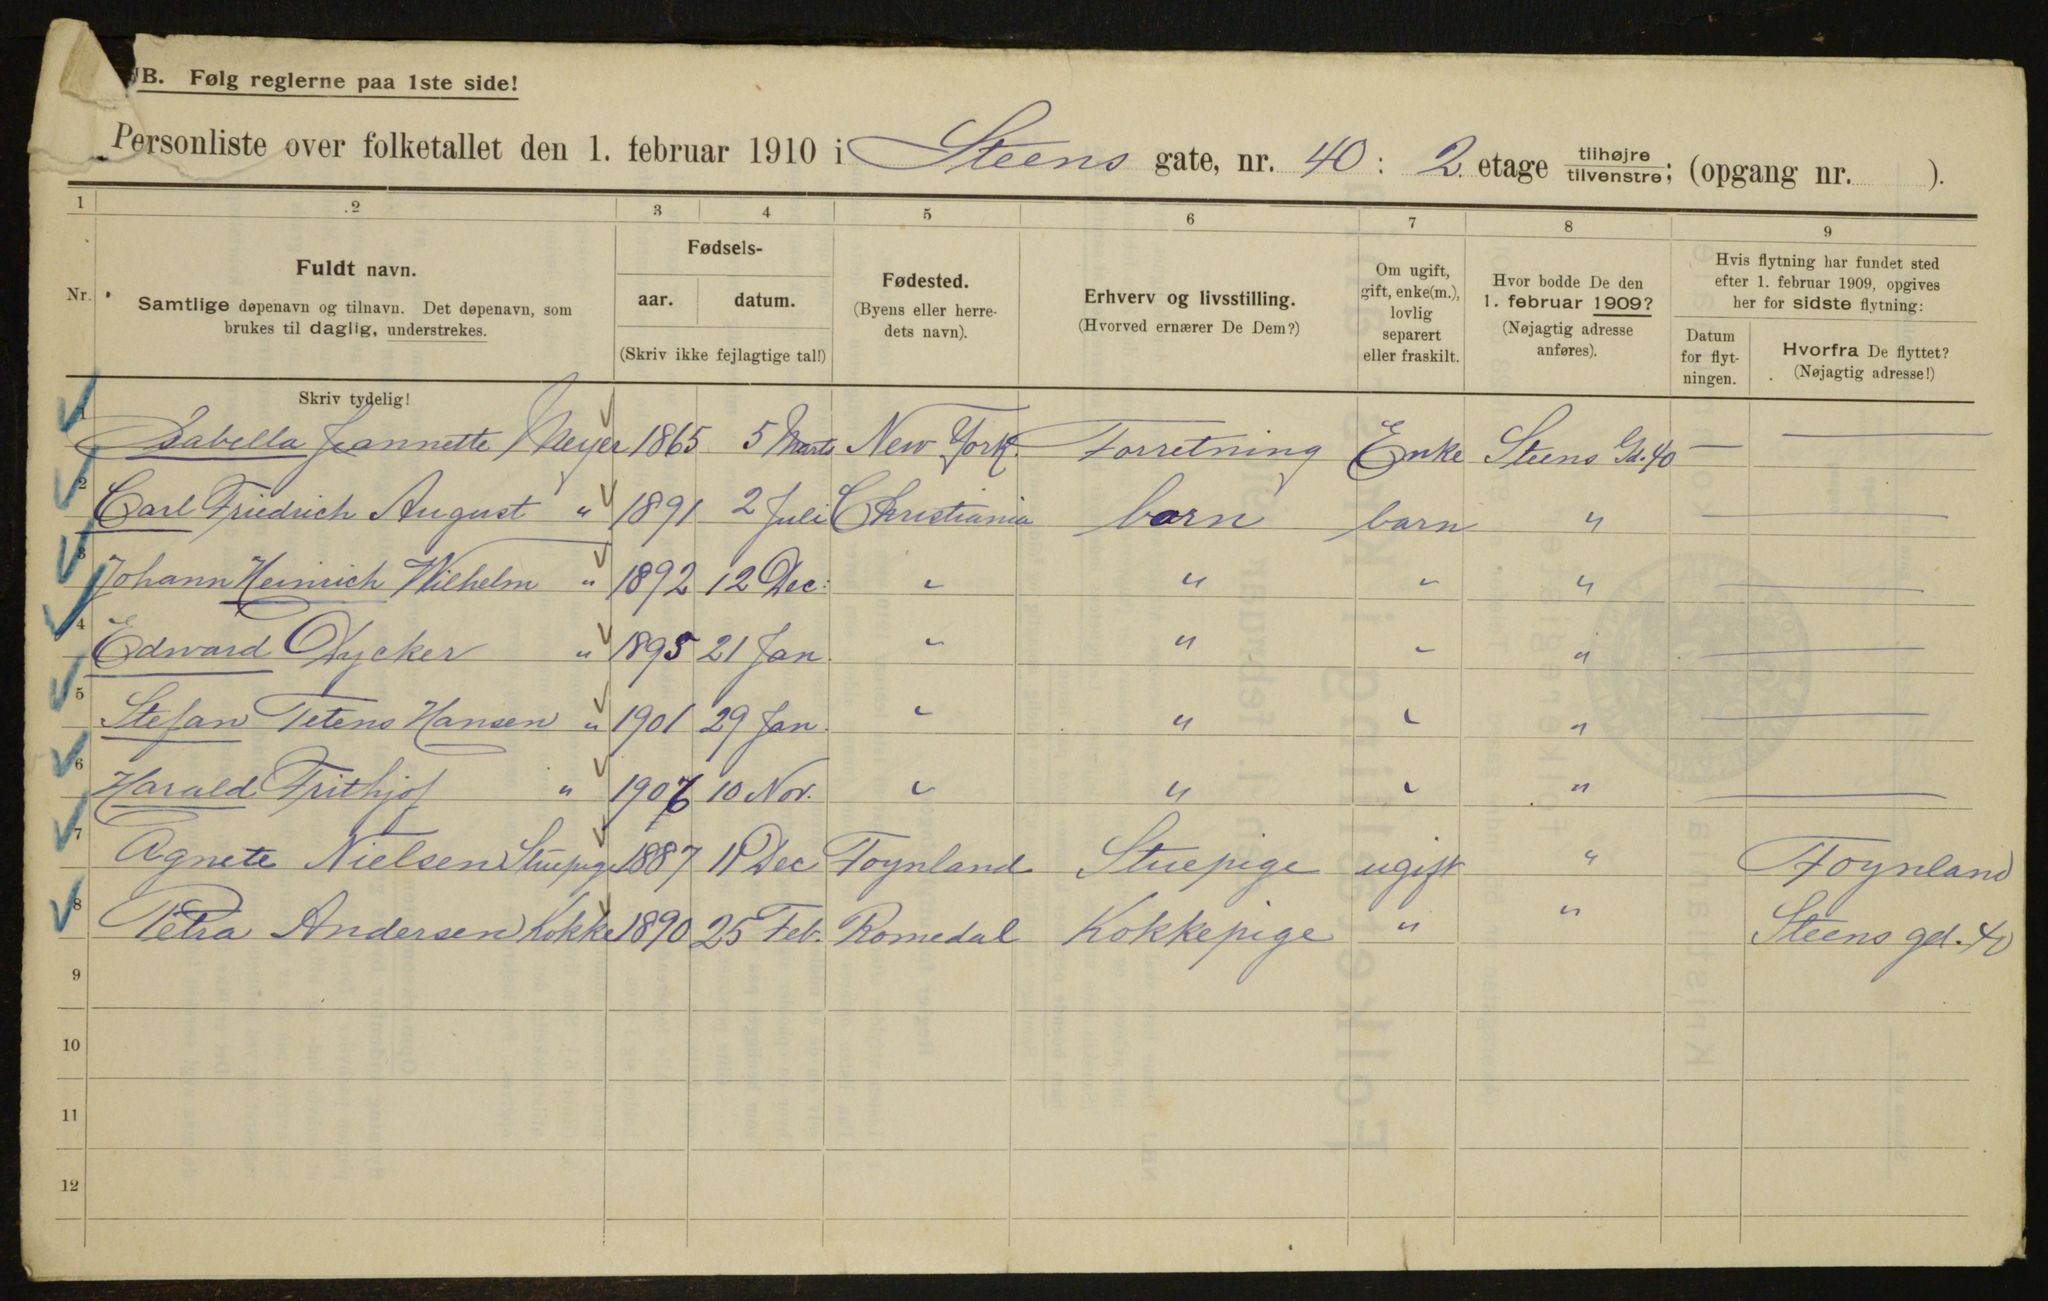 NB. Følg reglerne paa 1ste side!
Personliste over folketallet den 1. februar 1910 i Steens gate, nr. 40 : 2 etage tilhøjre tilvenstre; (opgang nr. ).
1 2 3 4 5 6 7 8 9
Nr.
Fuldt navn.
Samtlige døpenavn og tilnavn. Det døpenavn, som
brukes til daglig, understrekes.
Skriv tydelig!
Fødsels-
aar. datum.
(Skriv ikke fejlagtige tal!)
Fødested.
(Byens eller herre-
dets navn).
Erhverv og livsstilling.
(Hvorved ernærer De Dem?)
Om ugift,
gift, enke(m.),
lovlig
separert
eller fraskilt.
Hvor bodde De den
1. februar 1909?
(Nøjagtig adresse
anføres).
Hvis flytning har fundet sted
efter 1. februar 1909, opgives
her for sidste flytning:
Datum
for flyt-
ningen.
Hvorfra De flyttet?
(Nøjagtig adresse!)
1 Isabella Jeannette Meyer 1865 5 Marts New York. Forretning Enke Steens Gd. 40 —
2 Carl Friedrich August " 1891 2 Juli Christiania barn barn " —
3 Johann Heinrich Wilhelm " 1892 12 Dec: " " " " —
4 Edward Dycker " 1895 21 Jan. " " " " —
5 Stefan Tetens Hansen " 1901 29 Jan. " " " " —
6 Harald Frithjof " 1906 10 Nov. " " " " —
7 Agnete Nielsen Stuepige 1887 11 Dec Foynland Stuepige ugift " Foynland
8 Petra Andersen Kokke 1890 25 Feb. Romedal Kokkepige " " Steens gd. 40
9
10
11
12